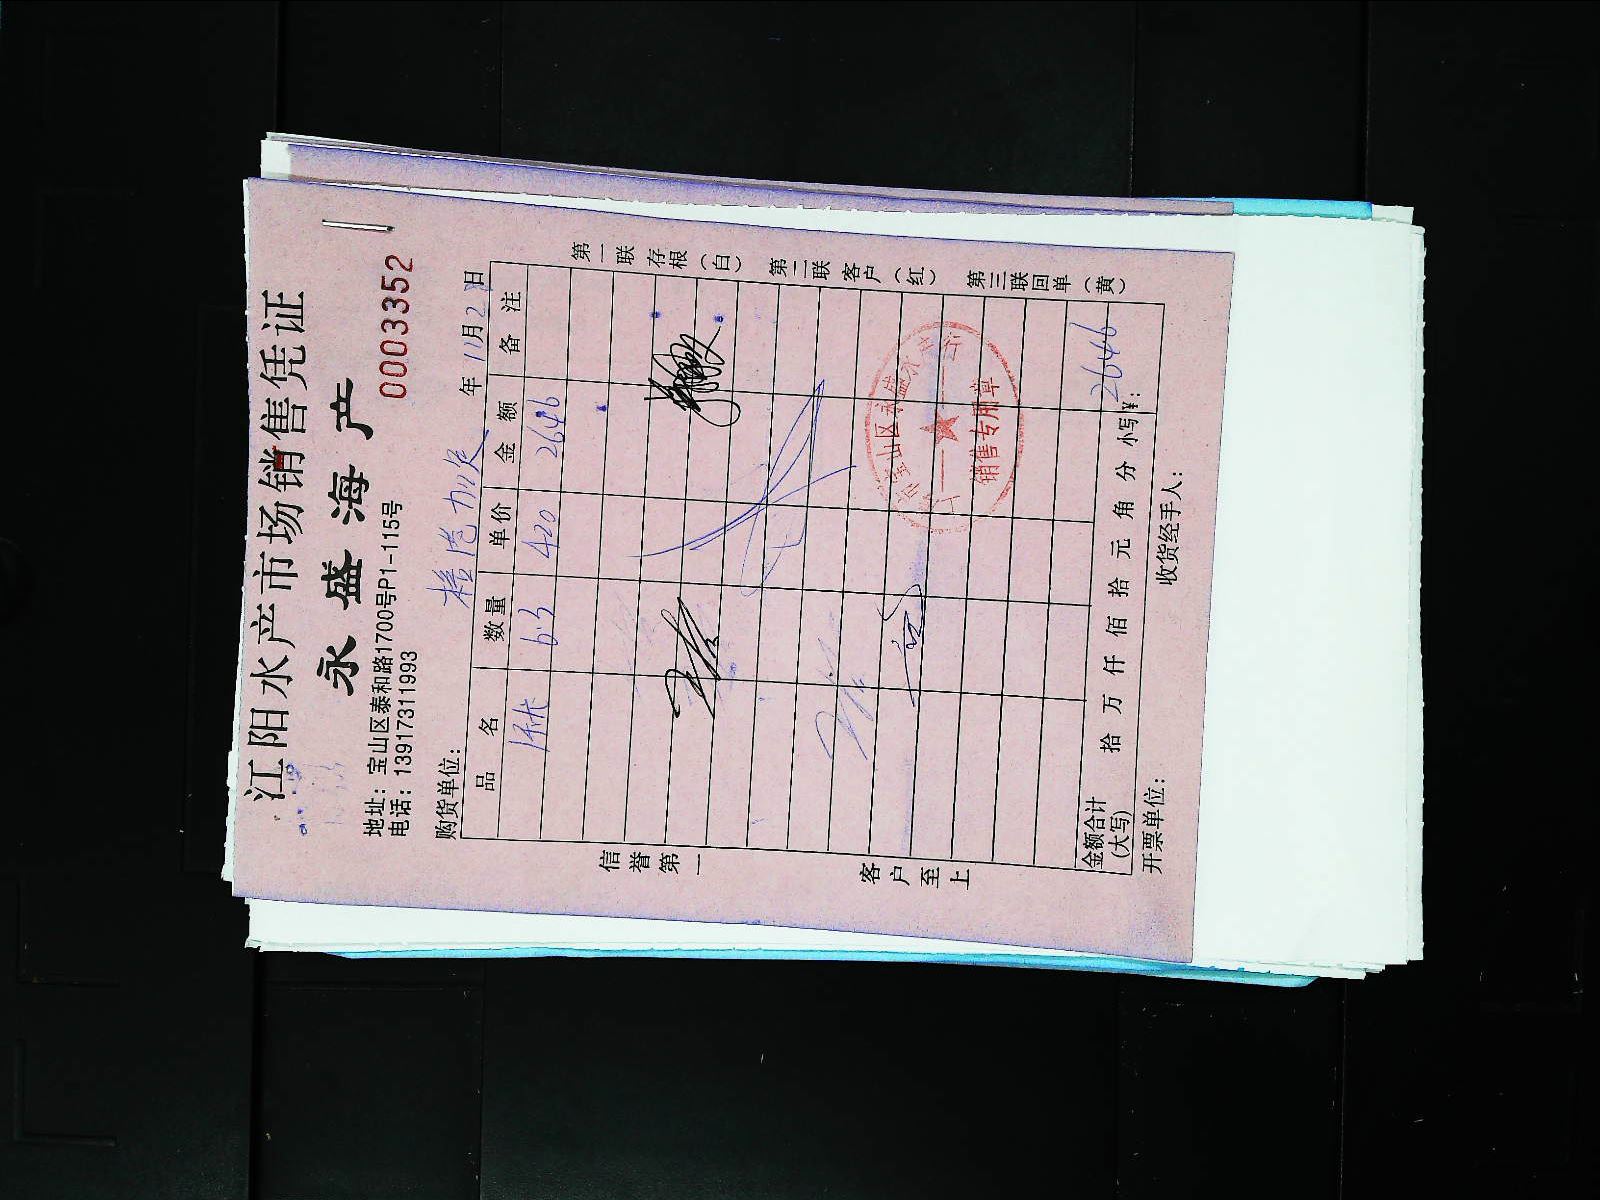 江阳水产市场销售凭证
永盛海产
地址：宝山区泰和路1700号P1-115号
电话：13917311993
0003352
购货单位：
年 11月2日
品名 数量 单价 金额 备注
6.3 420 2646
信誉第一
客户至上
第一联存根（白）
第二联客户（红）
第三联回单（黄）
宝山区永盛水产
销售专用章
金额合计(大写) 拾 万 仟 佰 拾 元 角 分 小写¥: 2646
开票单位： 收货经手人：